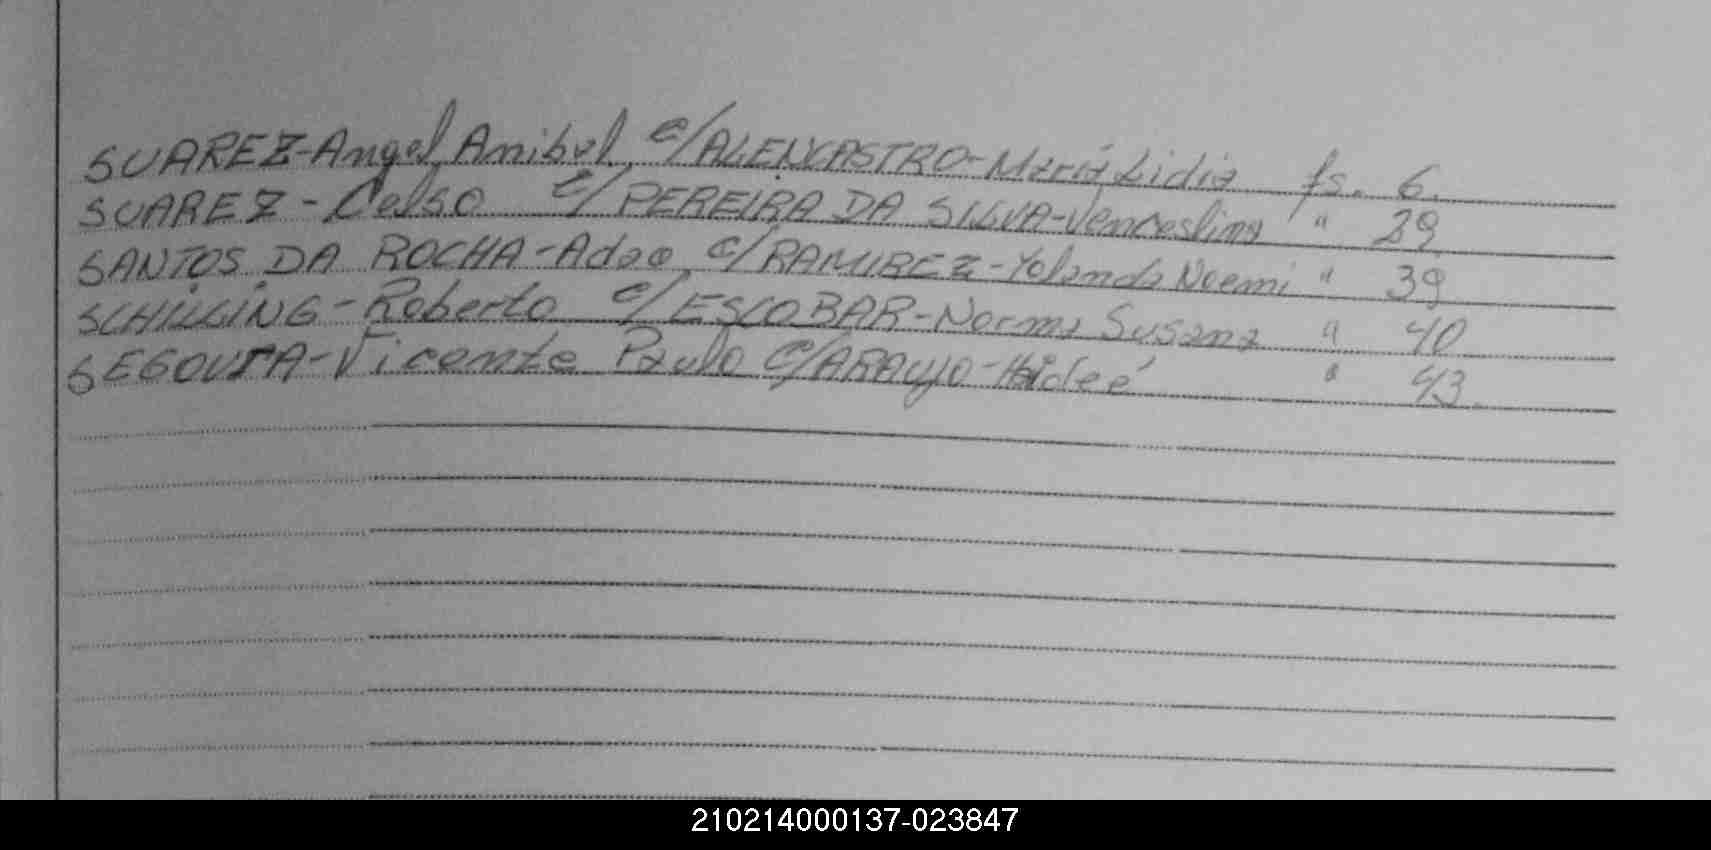 SUAREZ-Angel Anibal c/ALENCASTRO-María Lidia fs. 6.
SUAREZ-Celso c/PEREIRA DA SILVA-Venceslina " 29
SANTOS DA ROCHA-Adao c/RAMIREZ-Yolanda Noemi " 39
SCHILLING-Roberto c/ESCOBAR-Norma Susana " 40
SEGOVIA-Vicente Paulo c/ARAUJO-Haideé " 43.
210214000137-023847